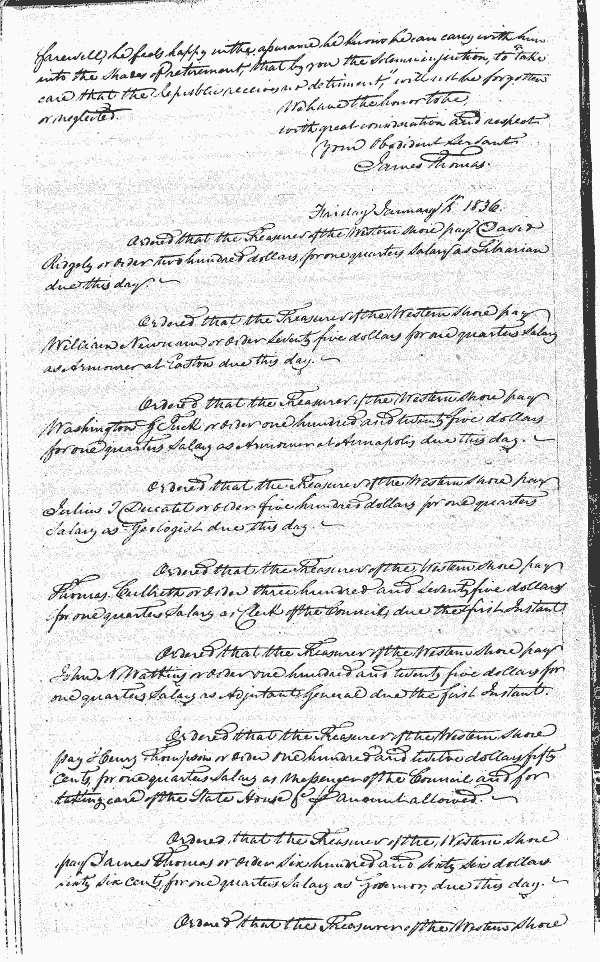 farewell, he feels happy in the assurance he knows he can carry with him
into the shades of retirement, that by you the solemn injunction, to "take
care that the Republic receives no detriment," will not be forgotten
or neglected.
We have the honor to be,
with great consideration and respect
Your Obedient Servant
James Thomas.
Friday January 1st 1836.
Ordered that the Treasurer of the Western Shore pay David
Ridgely or order two hundred dollars, for one quarters Salary as Librarian
due this day
Ordered that the Treasurer of the Western Shore pay
William Newnam or order Seventy five dollars for one quarters Salary
as Armourer at Easton due this day.
Ordered that the Treasurer of the Western Shore pay
Washington G Tuck or order one hundred and twenty five dollars
for one quarters Salary as Armourer at Annapolis due this day.
Ordered that the Treasurer of the Western Shore pay
Julius T Ducatel or order five hundred dollars for one quarters
Salary as Geologist due this day.
Ordered that the Treasurer of the Western Shore pay
Thomas Culbreth or order three hundred and Seventy five dollars
for one quarters Salary as Clerk of the Council, due the first Instant
Ordered that the Treasurer of the Western Shore pay
John N Watkins or order one hundred and twenty five dollars for
one quarters Salary as Adjutant General due the first Instant.
Ordered that the Treasurer of the Western Shore
pay Henry Thompson or order one hundred and twelve dollars fifty
Cents, for one quarters Salary as Messenger of the Council and for
taking care of the State House &c amount allowed.
Ordered, that the Treasurer of the Western Shore
pay James Thomas or order Six hundred and Sixty Six dollars
sixty six cents, for one quarters Salary as Governor, due this day.
Ordered that the Treasurer of the Western Shore